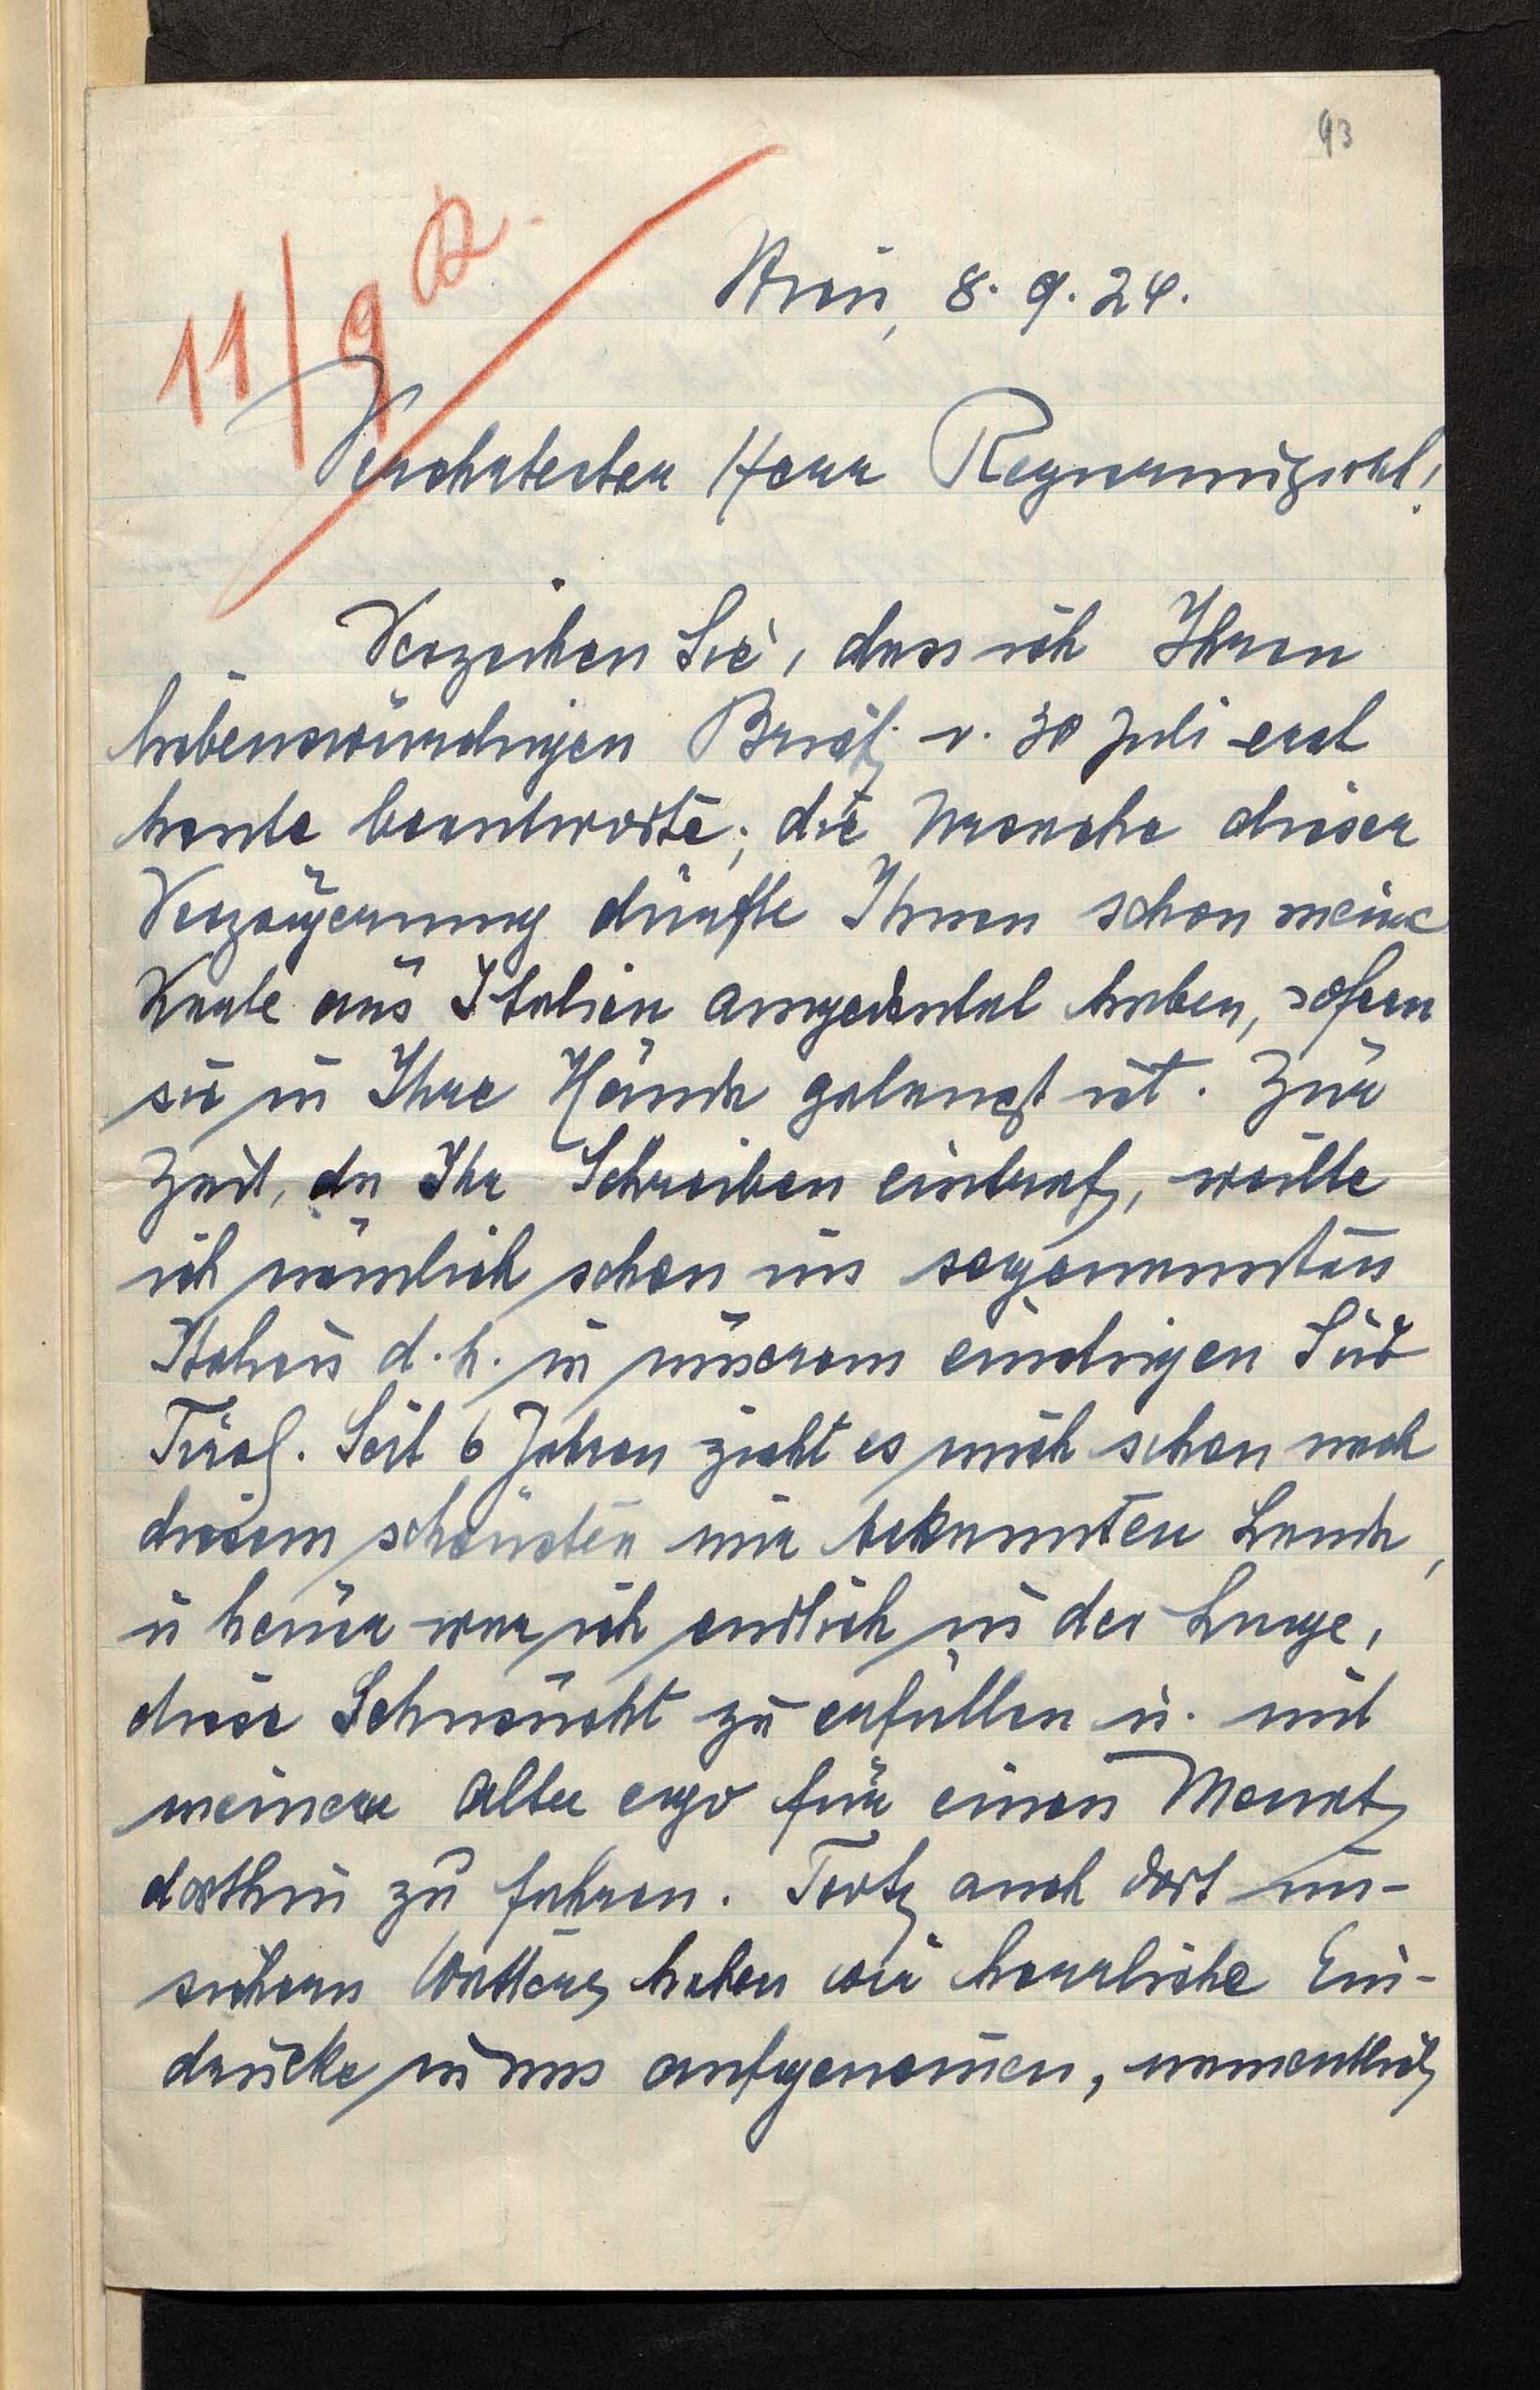 93
11/9
Wien, 8. 9. 24.
Verehrtester Herr Regierungsrat!
Verzeihen Sie, dass ich Ihren
liebenswürdigen Brief v. 30 Juli erst
heute beantworte; die Ursache dieser
Verzögerung dürfte Ihnen schon meine
Karte aus Italien angedeutet haben, sofern
sie in Ihre Hände gelangt ist. Zur
Zeit, da Ihr Schreiben eintraf, weilte
ich nämlich schon im sogenannten
Italien d. h. in unserem einstigen Süd
Tirol. Seit 6 Jahren zieht es mich schon nach
diesem schönsten mir bekannten Lande,
u heuer war ich endlich in der Lage,
diese Sehnsucht zu erfüllen u. mit
meinem alter ego für einen Monat
dorthin zu fahren. Trotz auch dort un-
sichern Wetters haben wir herrliche Ein-
drücke in uns aufgenommen, namentlich